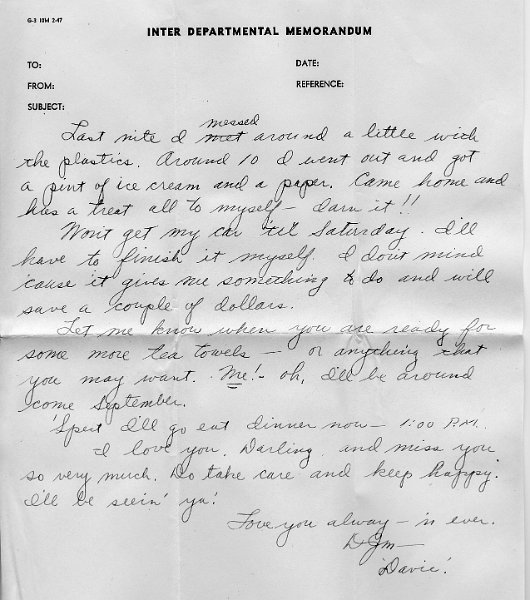 G-3 10M 2-47
INTER DEPARTMENTAL MEMORANDUM
TO:
DATE:
FROM:
REFERENCE:
SUBJECT:
messed
Last nite I met around a little with
the plastics. Around 10 I went out and got
a pint of ice cream and a paper. Came home and
has a treat all to myself - darn it!!
Won't get my car 'til Saturday. I'll
have to finish it myself. I dont mind
'cause it gives me something to do and will
save a couple of dollars.
Let me know when you are ready for
some more tea towels - or anything that
you may want. Me!- oh, I'll be around
come September.
'Spect I'll go eat dinner now - 1:00 P.M.
I love you, Darling, and miss you
so very much. Do take care and keep happy.
I'll be seein' ya!
Love you alway - 'n ever.
'Davie'.